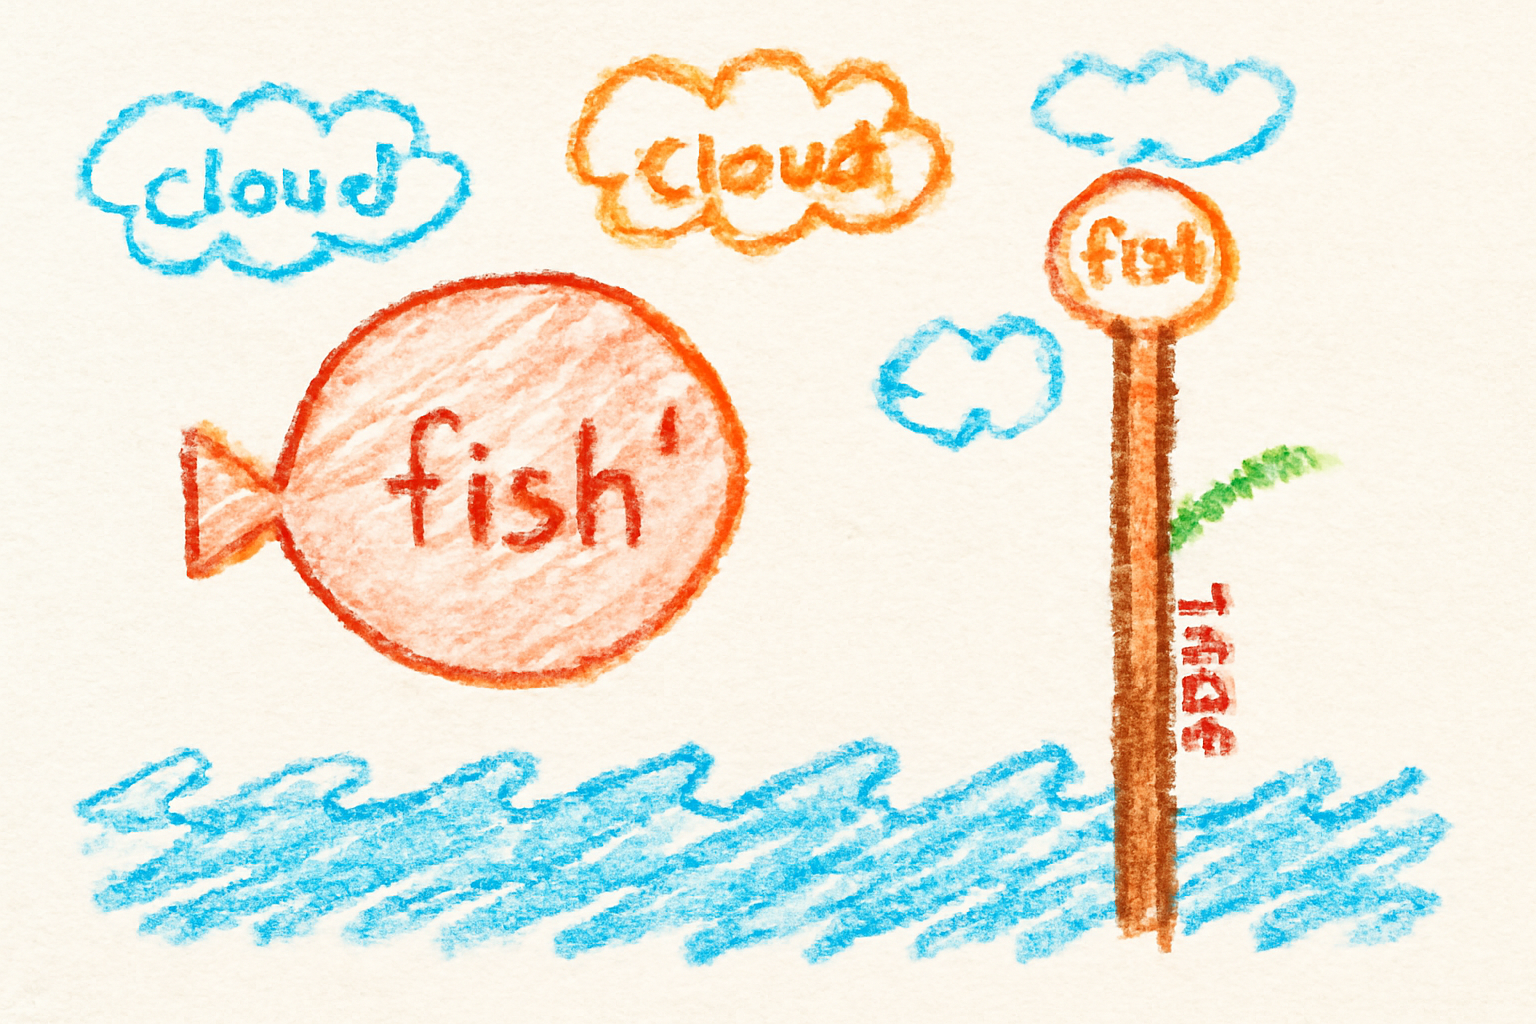 cloud
cloud
fish
fish'